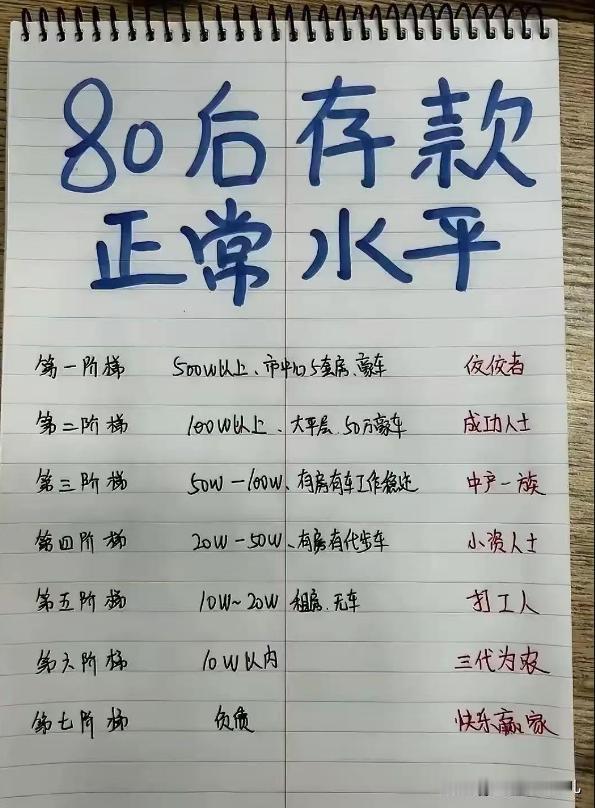 80后存款
正常水平
第一阶梯 500W以上、市中心5套房、豪车 佼佼者
第二阶梯 100W以上、大平层、50万豪车 成功人士
第三阶梯 50W-100W、有房有车工作稳定 中产一族
第四阶梯 20W-50W、有房有代步车 小资人士
第五阶梯 10W~20W 租房、无车 打工人
第六阶梯 10W以内 三代为农
第七阶梯 负债 快乐赢家